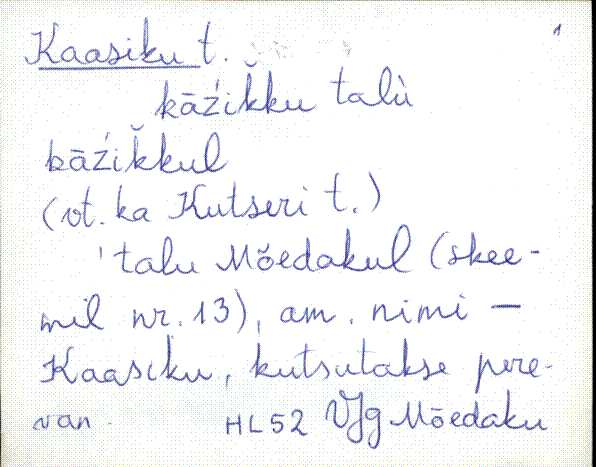 1
Kaasiku t.
kāźik̆ku talù
kāźik̆kul
(vt. ka Kutseri t.)
'talu Mõedakul (skee-
mil nr. 13), am. nimi —
Kaasiku, kutsutakse pere-
van.
HL52 VJg Mõedaku